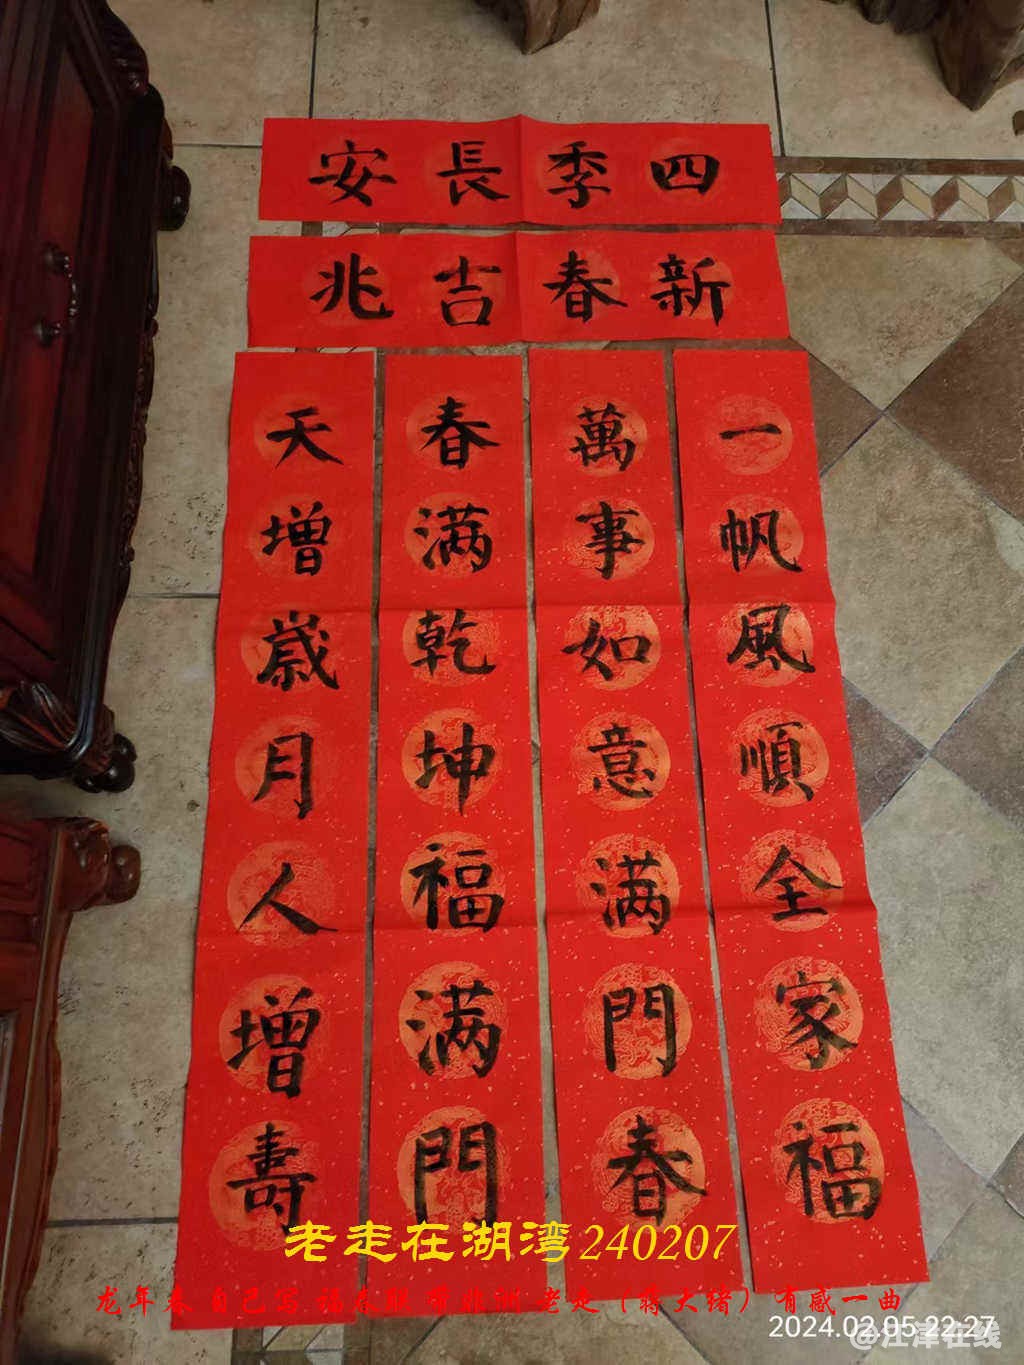 四季長安
新春吉兆
一帆風順全家福
萬事如意满門春
春满乾坤福满門
天增歲月人增壽
老走在湖湾240207
龙年春 自己写 福春联 带非洲 老走（蒋大绪）有感一曲
2024.02.05 22:27
@江津在线